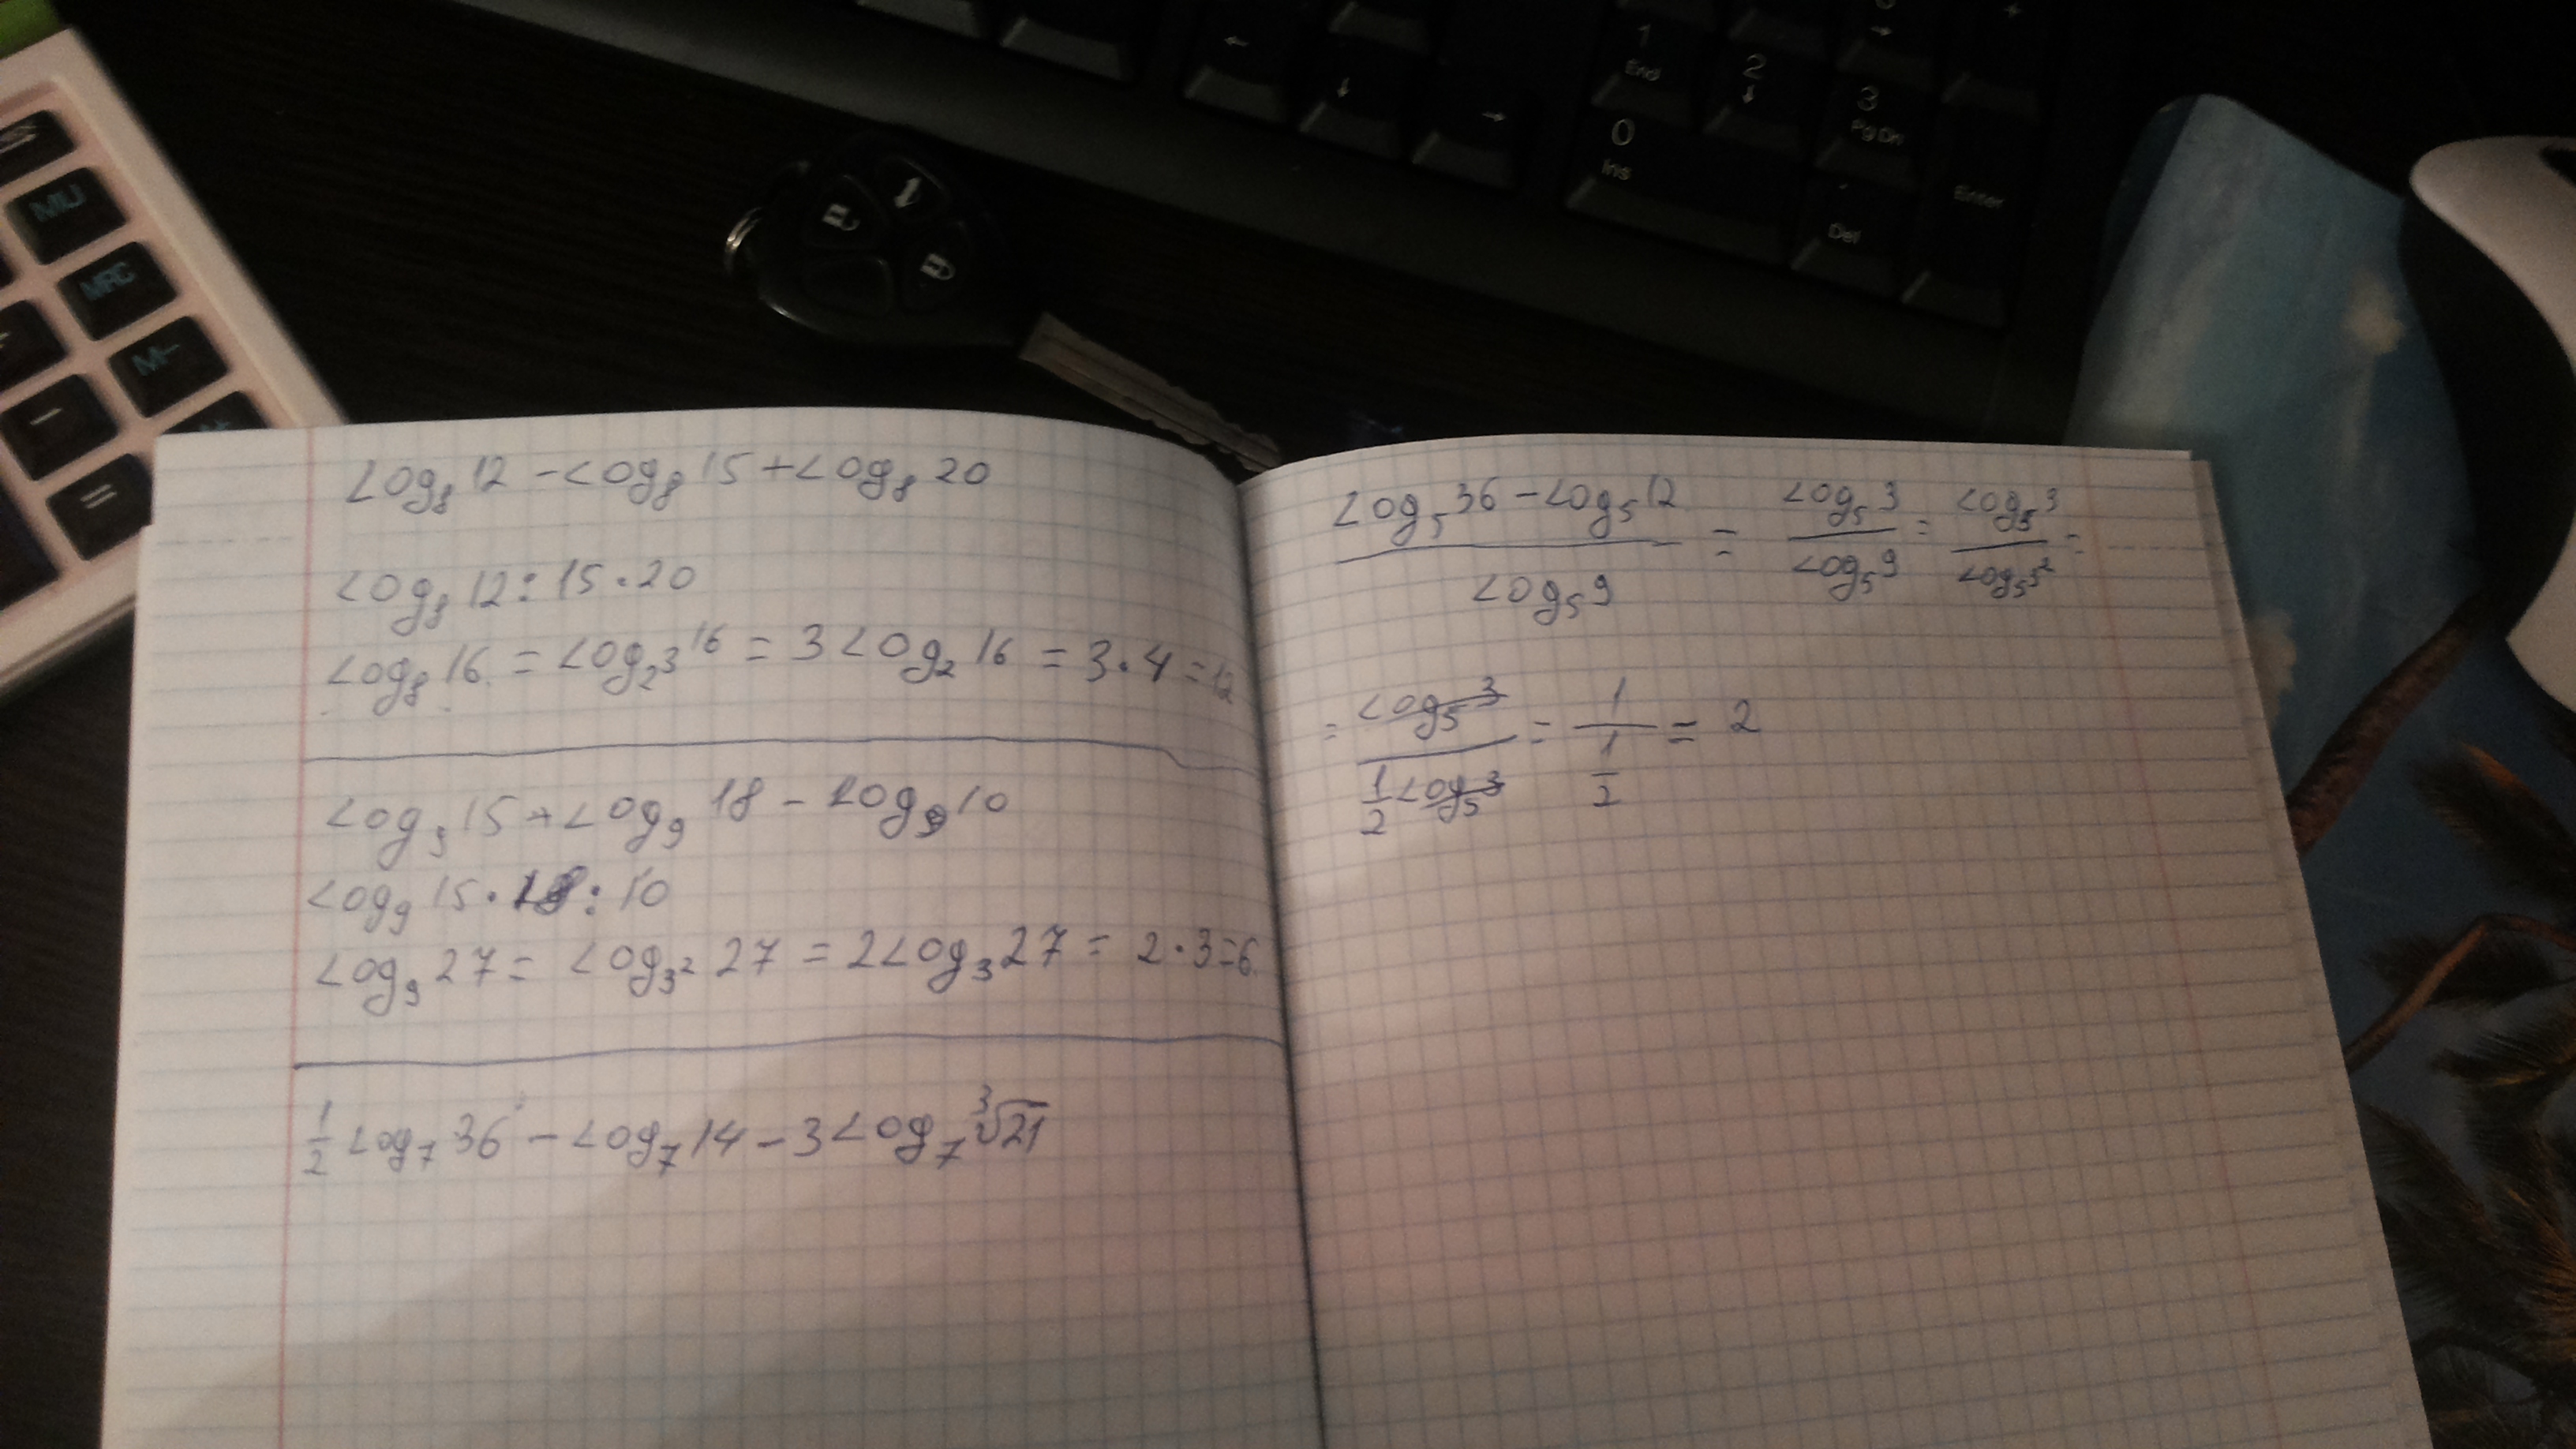 MU
MRC
M-
-
=
←
↓
→
1
End
2
↓
3
Pg Dn
0
Ins
Del
Enter
+
Log₈ 12 - Log₈ 15 + Log₈ 20
Log₈ 12 : 15 · 20
Log₈ 16 = Log₂³ 16 = 3 Log₂ 16 = 3 · 4 = 12
Log₉ 15 + Log₉ 18 - Log₉ 10
Log₉ 15 · 18 : 10
Log₉ 27 = Log₃² 27 = 2 Log₃ 27 = 2 · 3 = 6
1/2 Log₇ 36 - Log₇ 14 - 3 Log₇ ∛21
(Log₅ 36 - Log₅ 12) / Log₅ 9 = Log₅ 3 / Log₅ 9 = Log₅ 3 / Log₅ 3² =
= Log₅ 3 / (1/2 Log₅ 3) = 1 / (1/2) = 2